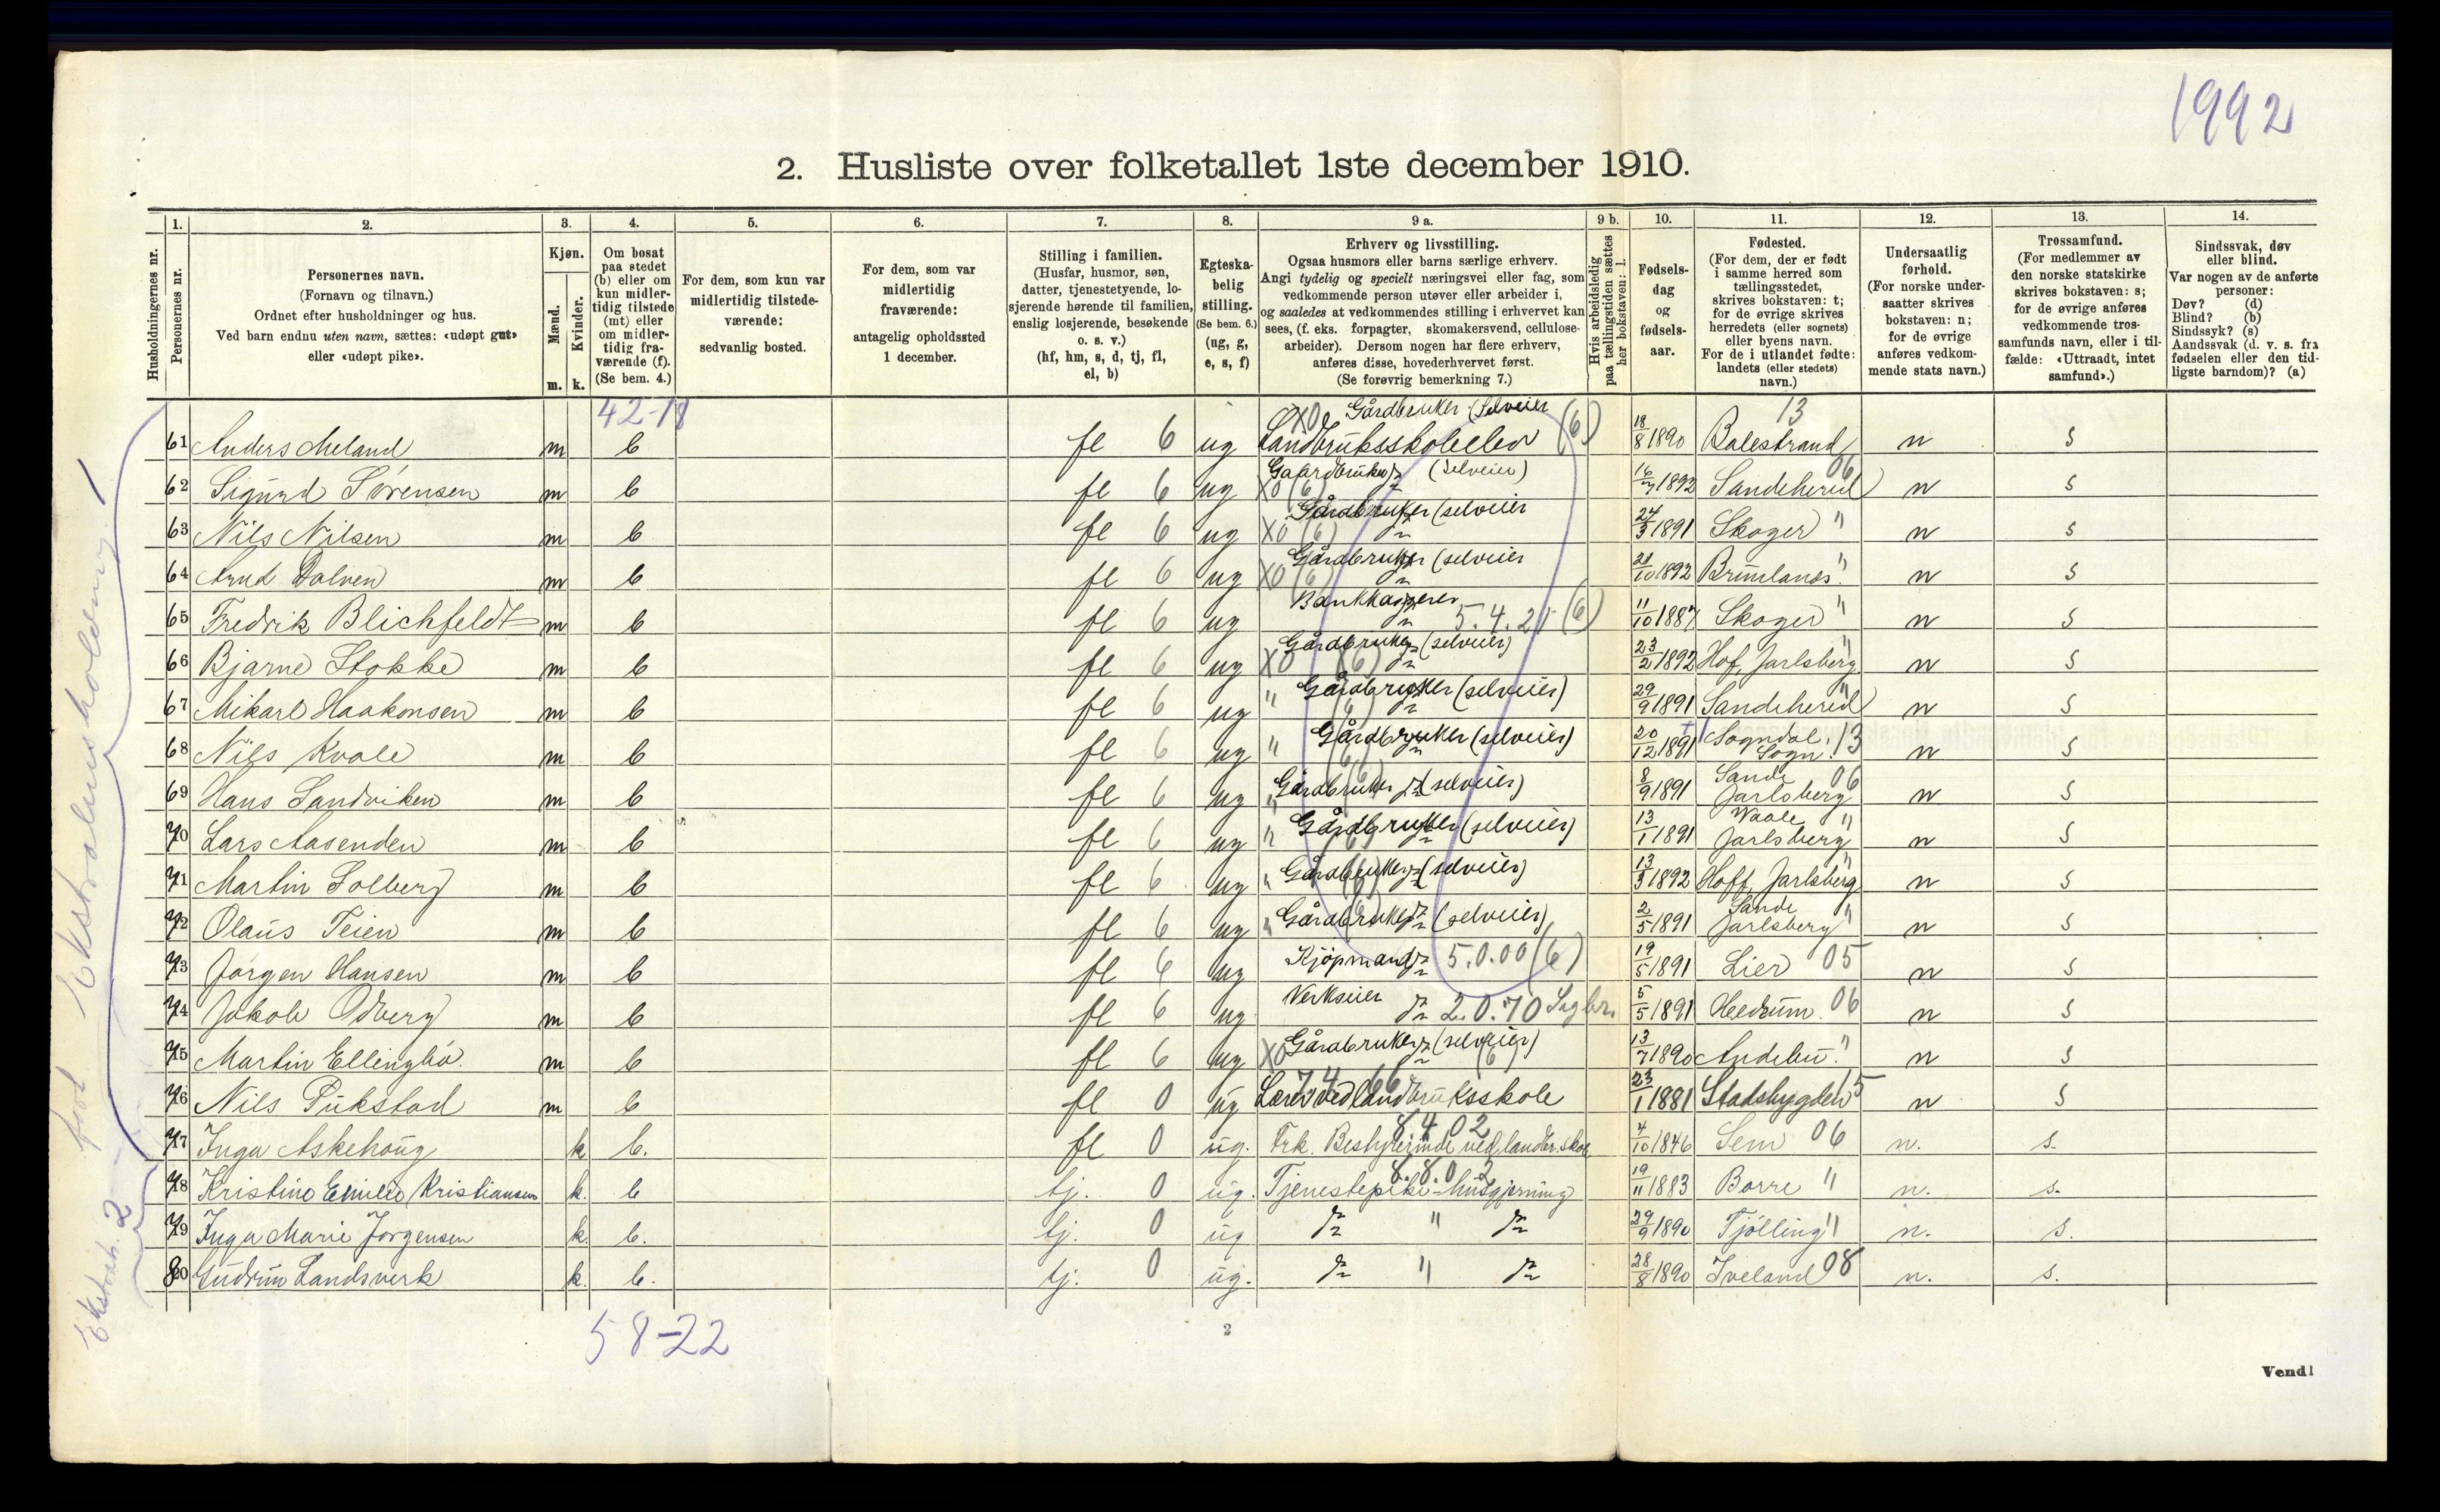 1992
2. Husliste over folketallet 1ste december 1910.
Husholdningernes nr.
1. Personernes nr.
2. Personernes navn. (Fornavn og tilnavn.) Ordnet efter husholdninger og hus. Ved barn endnu uten navn, sættes: «udøpt gut» eller «udøpt pike».
3. Kjøn. Mænd. m. Kvinder. k.
4. Om bosat paa stedet (b) eller om kun midlertidig tilstede (mt) eller om midlertidig fraværende (f). (Se bem. 4.)
5. For dem, som kun var midlertidig tilstedeværende: sedvanlig bosted.
6. For dem, som var midlertidig fraværende: antagelig opholdssted 1 december.
7. Stilling i familien. (Husfar, husmor, søn, datter, tjenestetyende, losjerende hørende til familien, enslig losjerende, besøkende o. s. v.) (hf, hm, s, d, tj, fl, el, b)
8. Egteskabelig stilling. (Se bem. 6.) (ug, g, e, s, f)
9 a. Erhverv og livsstilling. Ogsaa husmors eller barns særlige erhverv. Angi tydelig og specielt næringsvei eller fag, som vedkommende person utøver eller arbeider i, og saaledes at vedkommendes stilling i erhvervet kan sees, (f. eks. forpagter, skomakersvend, cellulosearbeider). Dersom nogen har flere erhverv, anføres disse, hovederhvervet først. (Se forøvrig bemerkning 7.)
9 b. Hvis arbeidsledig paa tællingstiden sættes her bokstaven: l.
10. Fødselsdag og fødselsaar.
11. Fødested. (For dem, der er født i samme herred som tællingsstedet, skrives bokstaven: t; for de øvrige skrives herredets (eller sognets) eller byens navn. For de i utlandet fødte: landets (eller stedets) navn.)
12. Undersaatlig forhold. (For norske undersaatter skrives bokstaven: n; for de øvrige anføres vedkommende stats navn.)
13. Trossamfund. (For medlemmer av den norske statskirke skrives bokstaven: s; for de øvrige anføres vedkommende trossamfunds navn, eller i tilfælde: «Uttraadt, intet samfund».)
14. Sindssvak, døv eller blind. Var nogen av de anførte personer: Døv? (d) Blind? (b) Sindssyk? (s) Aandssvak (d. v. s. fra fødselen eller den tidligste barndom)? (a)
42-18
61 Anders Meland m b fl 6 ug XO Gårdbruker (Selveier Landbruksskoleelev (6) 18/8 1890 Balestrand 13 n s
62 Sigurd Sørensen m b fl 6 ug XO (6) Gaardbruker (selveier) 16/7 1892 Sandeherred 06 n s
63 Nils Nilsen m b fl 6 ug XO (6) Gårdbruker (selveier 24/3 1891 Skoger " n s
64 Arnd Dalven m b fl 6 ug XO (6) Gårdbruker (selveier 21/10 1892 Brunlanes " n s
65 Fredrik Blichfeldt m b fl 6 ug Bankkasserer 5.4.21 (6) 11/10 1887 Skoger " n s
66 Bjarne Stokke m b fl 6 ug XO (6) Gårdbruker (selveier) 23/2 1892 Hof, Jarlsberg " n s
67 Mikael Haakonsen m b fl 6 ug " Gårdbruker (selveier) (6) 29/9 1891 Sandeherred " n s
68 Nils Kvale m b fl 6 ug " Gårdbruker (selveier) (6) 20/12 1891 Sogndal, Sogn. 13 n s
69 Hans Sandviken m b fl 6 ug " Gårdbruker (selveier) (6) 8/9 1891 Sande Jarlsberg 06 n s
70 Lars Aasenden m b fl 6 ug " Gårdbruker (selveier) (6) 13/1 1891 Vaale Jarlsberg " n s
71 Martin Solberg m b fl 6 ug " Gårdbruker (selveier) (6) 13/3 1892 Hoff, Jarlsberg " n s
72 Olaus Teien m b fl 6 ug " Gårdbruker (selveier) (6) 2/5 1891 Sande Jarlsberg " n s
73 Jørgen Hansen m b fl 6 ug Kjøpmand 5.0.00 (6) 19/5 1891 Lier 05 n s
74 Jakob Odberg m b fl 6 ug Verkseier 2.0.70 Sagbr. 5/5 1891 Hedrum 06 n s
75 Martin Ellingbø m b fl 6 ug XO Gårdbruker (selveier) (6) 13/7 1890 Andebu " n s
76 Nils Pukstad m b fl 0 ug Lærer ved landbruksskole 23/1 1881 Stadsbygden 15 n s
77 Inga Askehoug k b. fl 0 ug. Frk. Bestyrerinde ved landbr.skole 8402 4/10 1846 Sem 06 n. s.
78 Kristine Emilie Kristiansen k. b tj. 0 ug. Tjenestepike - husgjerning 8.8.02 19/11 1883 Borre " n. s.
79 Inga Marie Jørgensen k. b. tj. 0 ug do " do 29/9 1890 Tjølling " n. s.
80 Gudrun Landsverk k. b. tj. 0 ug. do " do 28/8 1890 Iveland 08 n. s.
58-22
2
Vend!
Ekstrahusholdning 1
Ekstrah. 2